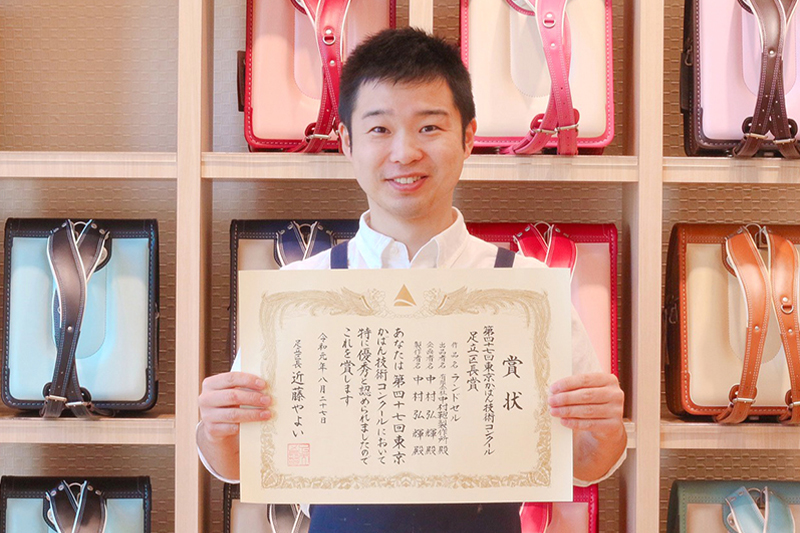 賞状
第四十七回東京かばん技術コンクール
足立区長賞
作品名 ランドセル
出品者名 有限会社中村鞄製作所殿
企画者名 中村弘輝殿
製作者名 中村弘輝殿
あなたは第四十七回東京
かばん技術コンクールにおいて
特に優秀と認められましたので
これを賞します
令和元年八月二十七日
足立区長 近藤やよい